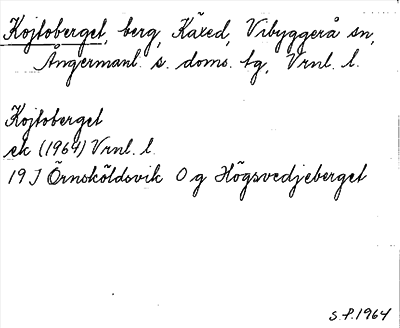 Kojtoberget, berg, Käxed, Vibyggerå sn,
Ångermanl. s. doms. tg, Vrnl. l.
Kojtoberget
ek (1964) Vrnl. l.
19 J Örnsköldsvik O g Högsvedjeberget
S.P. 1964